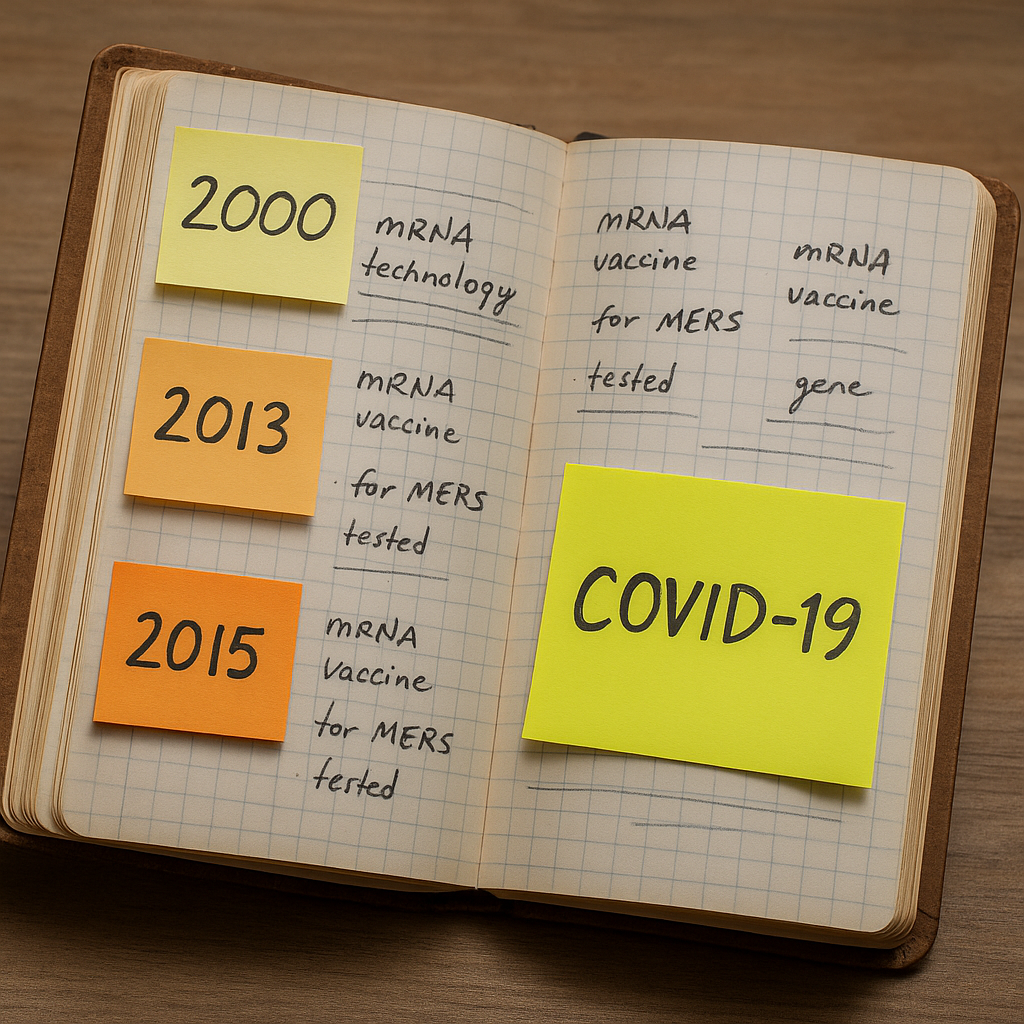 2000
mRNA
technology
2013
mRNA
vaccine
for MERS
tested
2015
mRNA
vaccine
for MERS
tested
mRNA
vaccine
for MERS
tested
mRNA
vaccine
gene
COVID-19